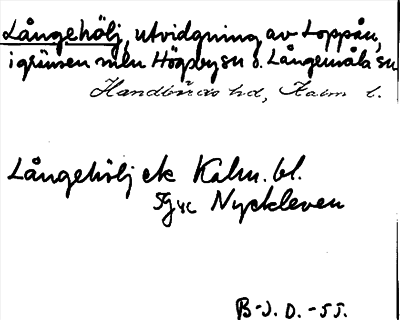 Långehölj, utvidgning av Loppån,
i gränsen mln Högsby sn o. Långemåla sn
Handbörds hd, Kalm l.
Långehölj ek Kalm. bl.
Nyckleven
B-J. D. -55.